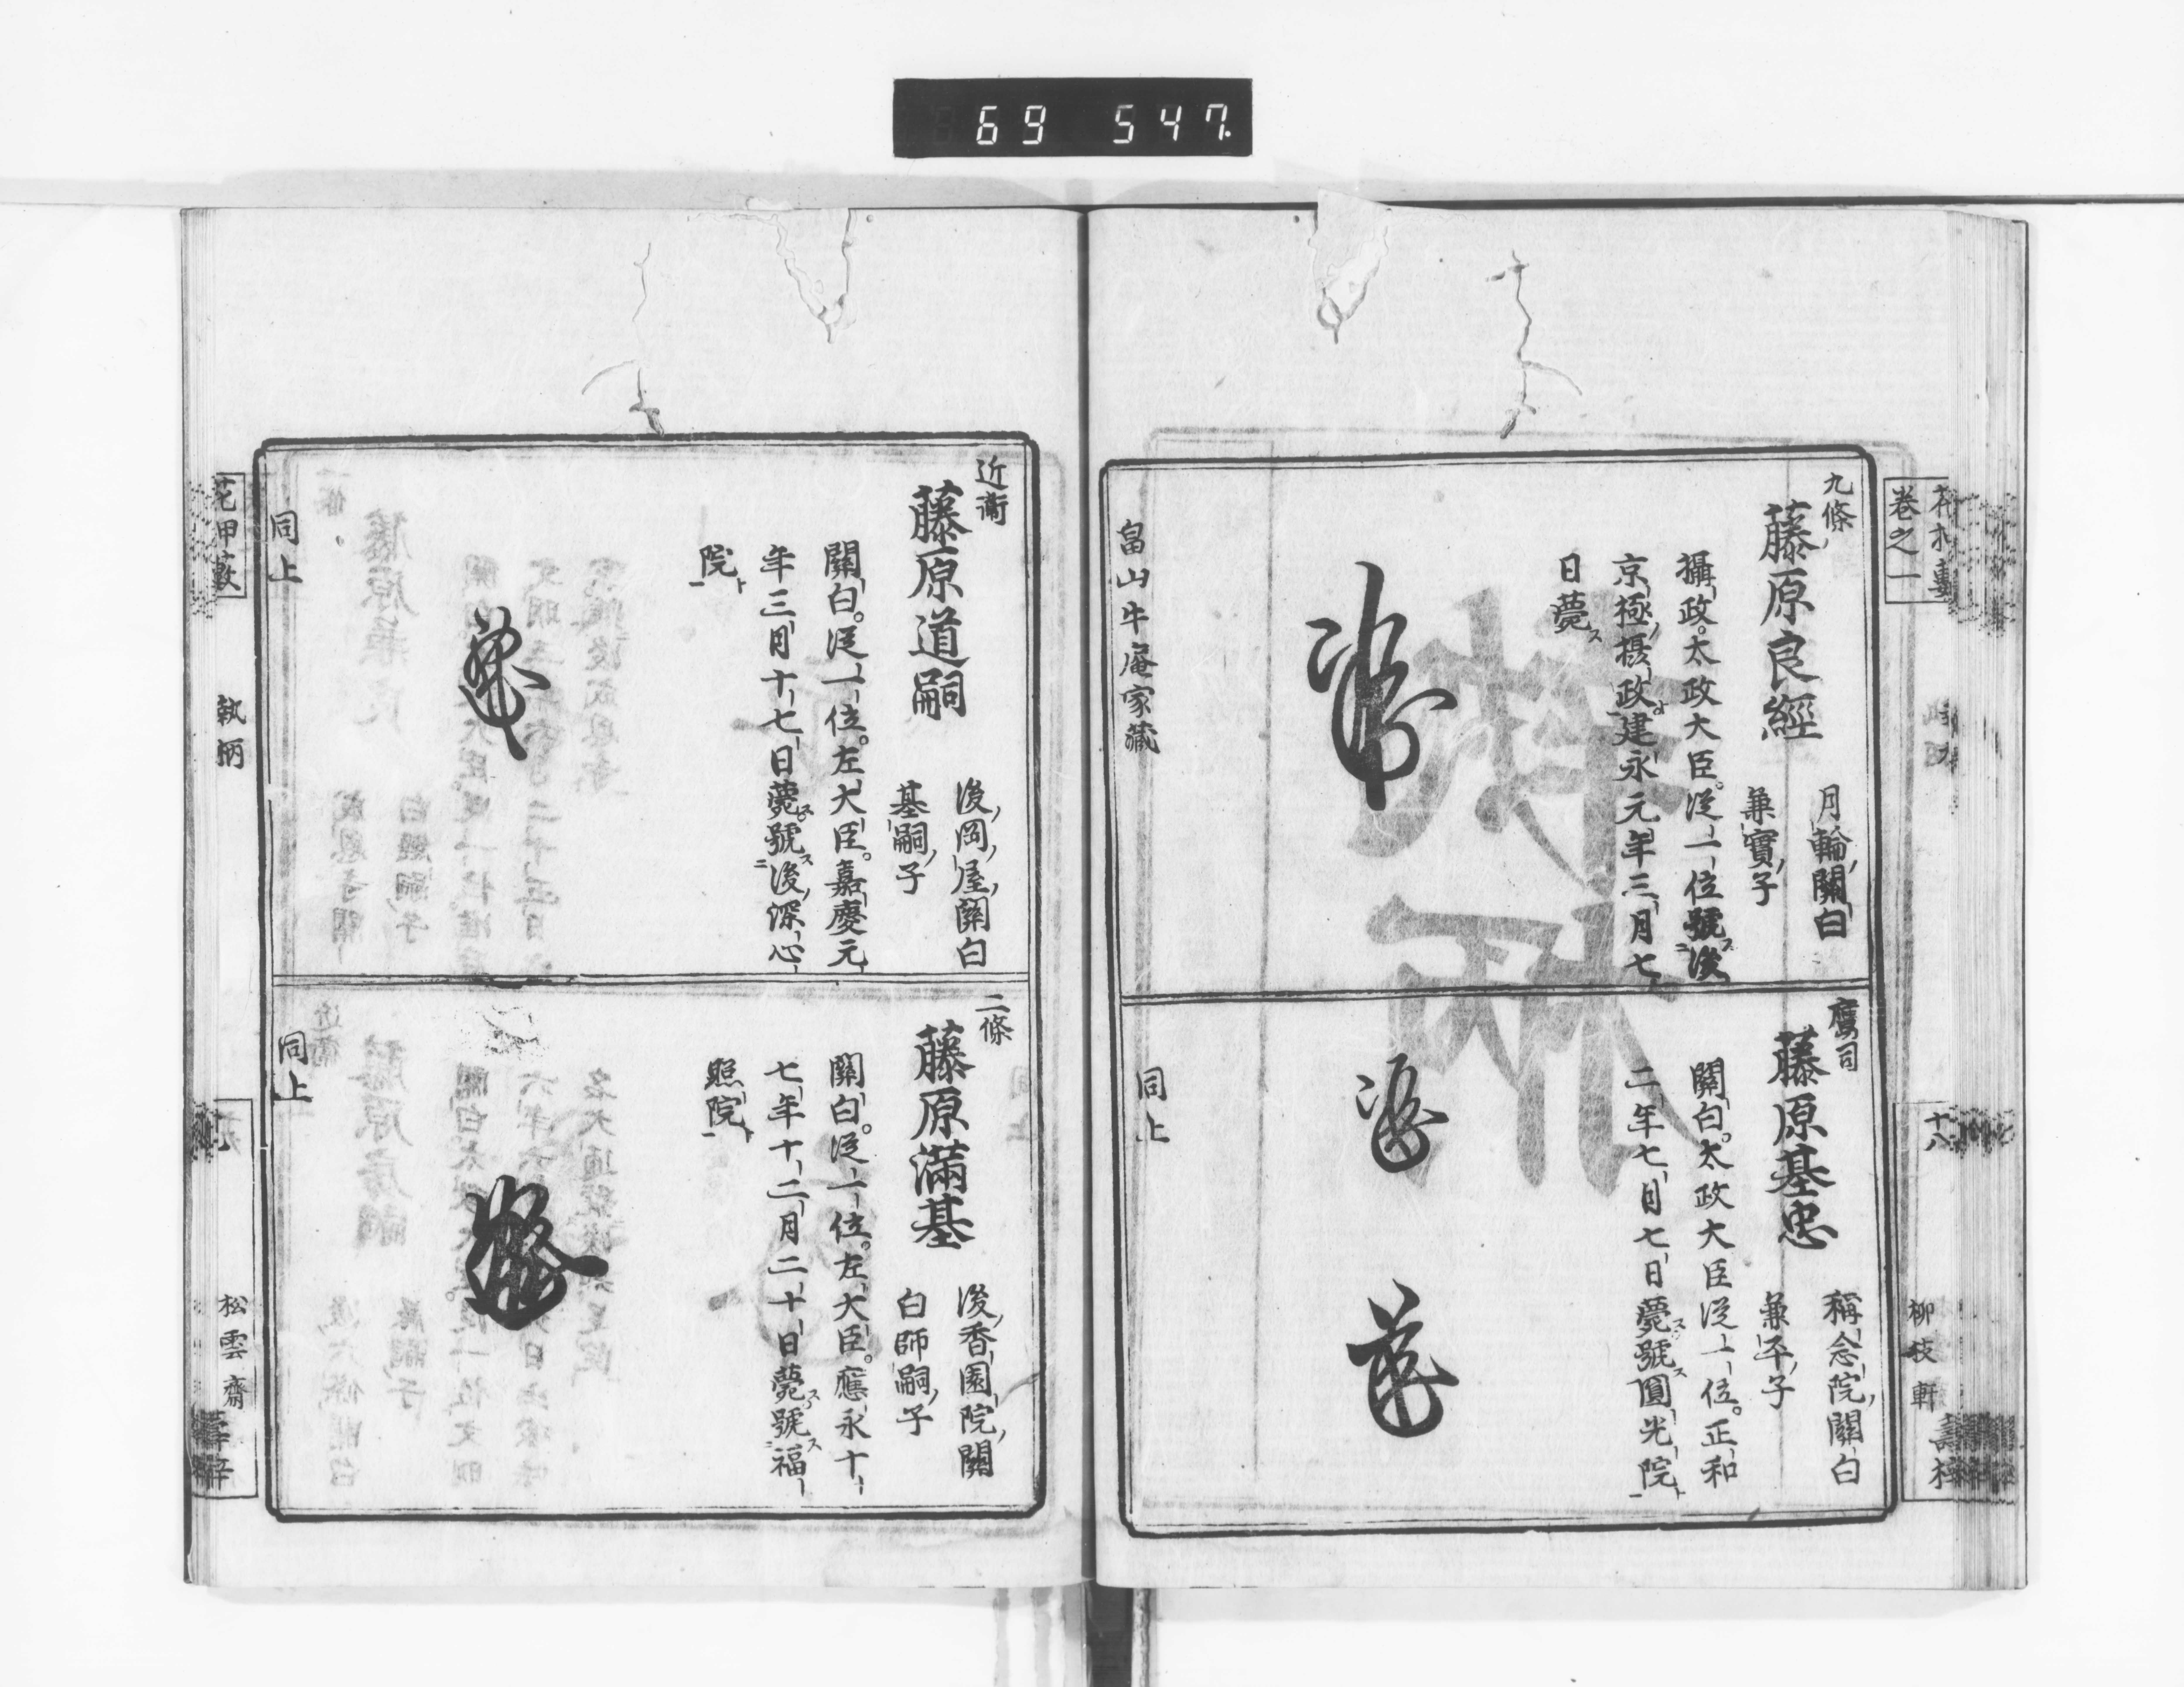 69 547
卷之一
十八
柳枝軒
九條
藤原良經
月輪關白
兼實子
攝政。太政大臣。從一位號後
京極攝政建永元年三月七
日薨ス
畠山牛庵家藏
鷹司
藤原基忠
稱念院關白
兼平子
關白。太政大臣從一位。正和
二年七月七日薨號圓光院
同上
近衞
藤原道嗣
後岡屋關白
基嗣子
關白。從一位。左大臣。嘉慶元
年三月十七日薨號後深心
院
同上
二條
藤原滿基
後香園院關
白師嗣子
關白。從一位。左大臣。應永十
七年十二月二十日薨號福
照院
同上
花甲藪
執柄
松雲齋